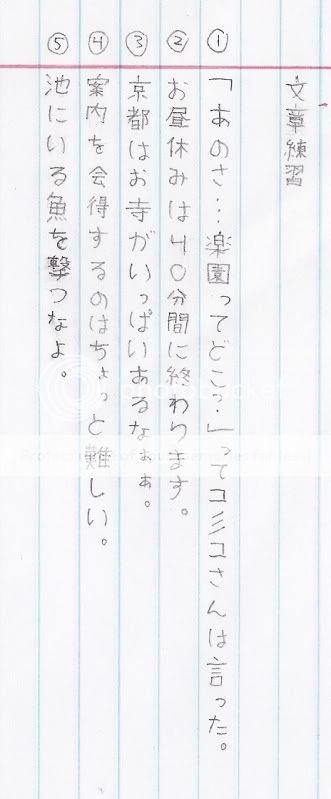 文章練習
① 「あのさ…楽園ってどこ?」ってコミコさんは言った。
② お昼休みは40分間に終わります。
③ 京都はお寺がいっぱいあるなぁぁ。
④ 案内を会得するのはちょっと難しい。
⑤ 池にいる魚を撃つなよ。